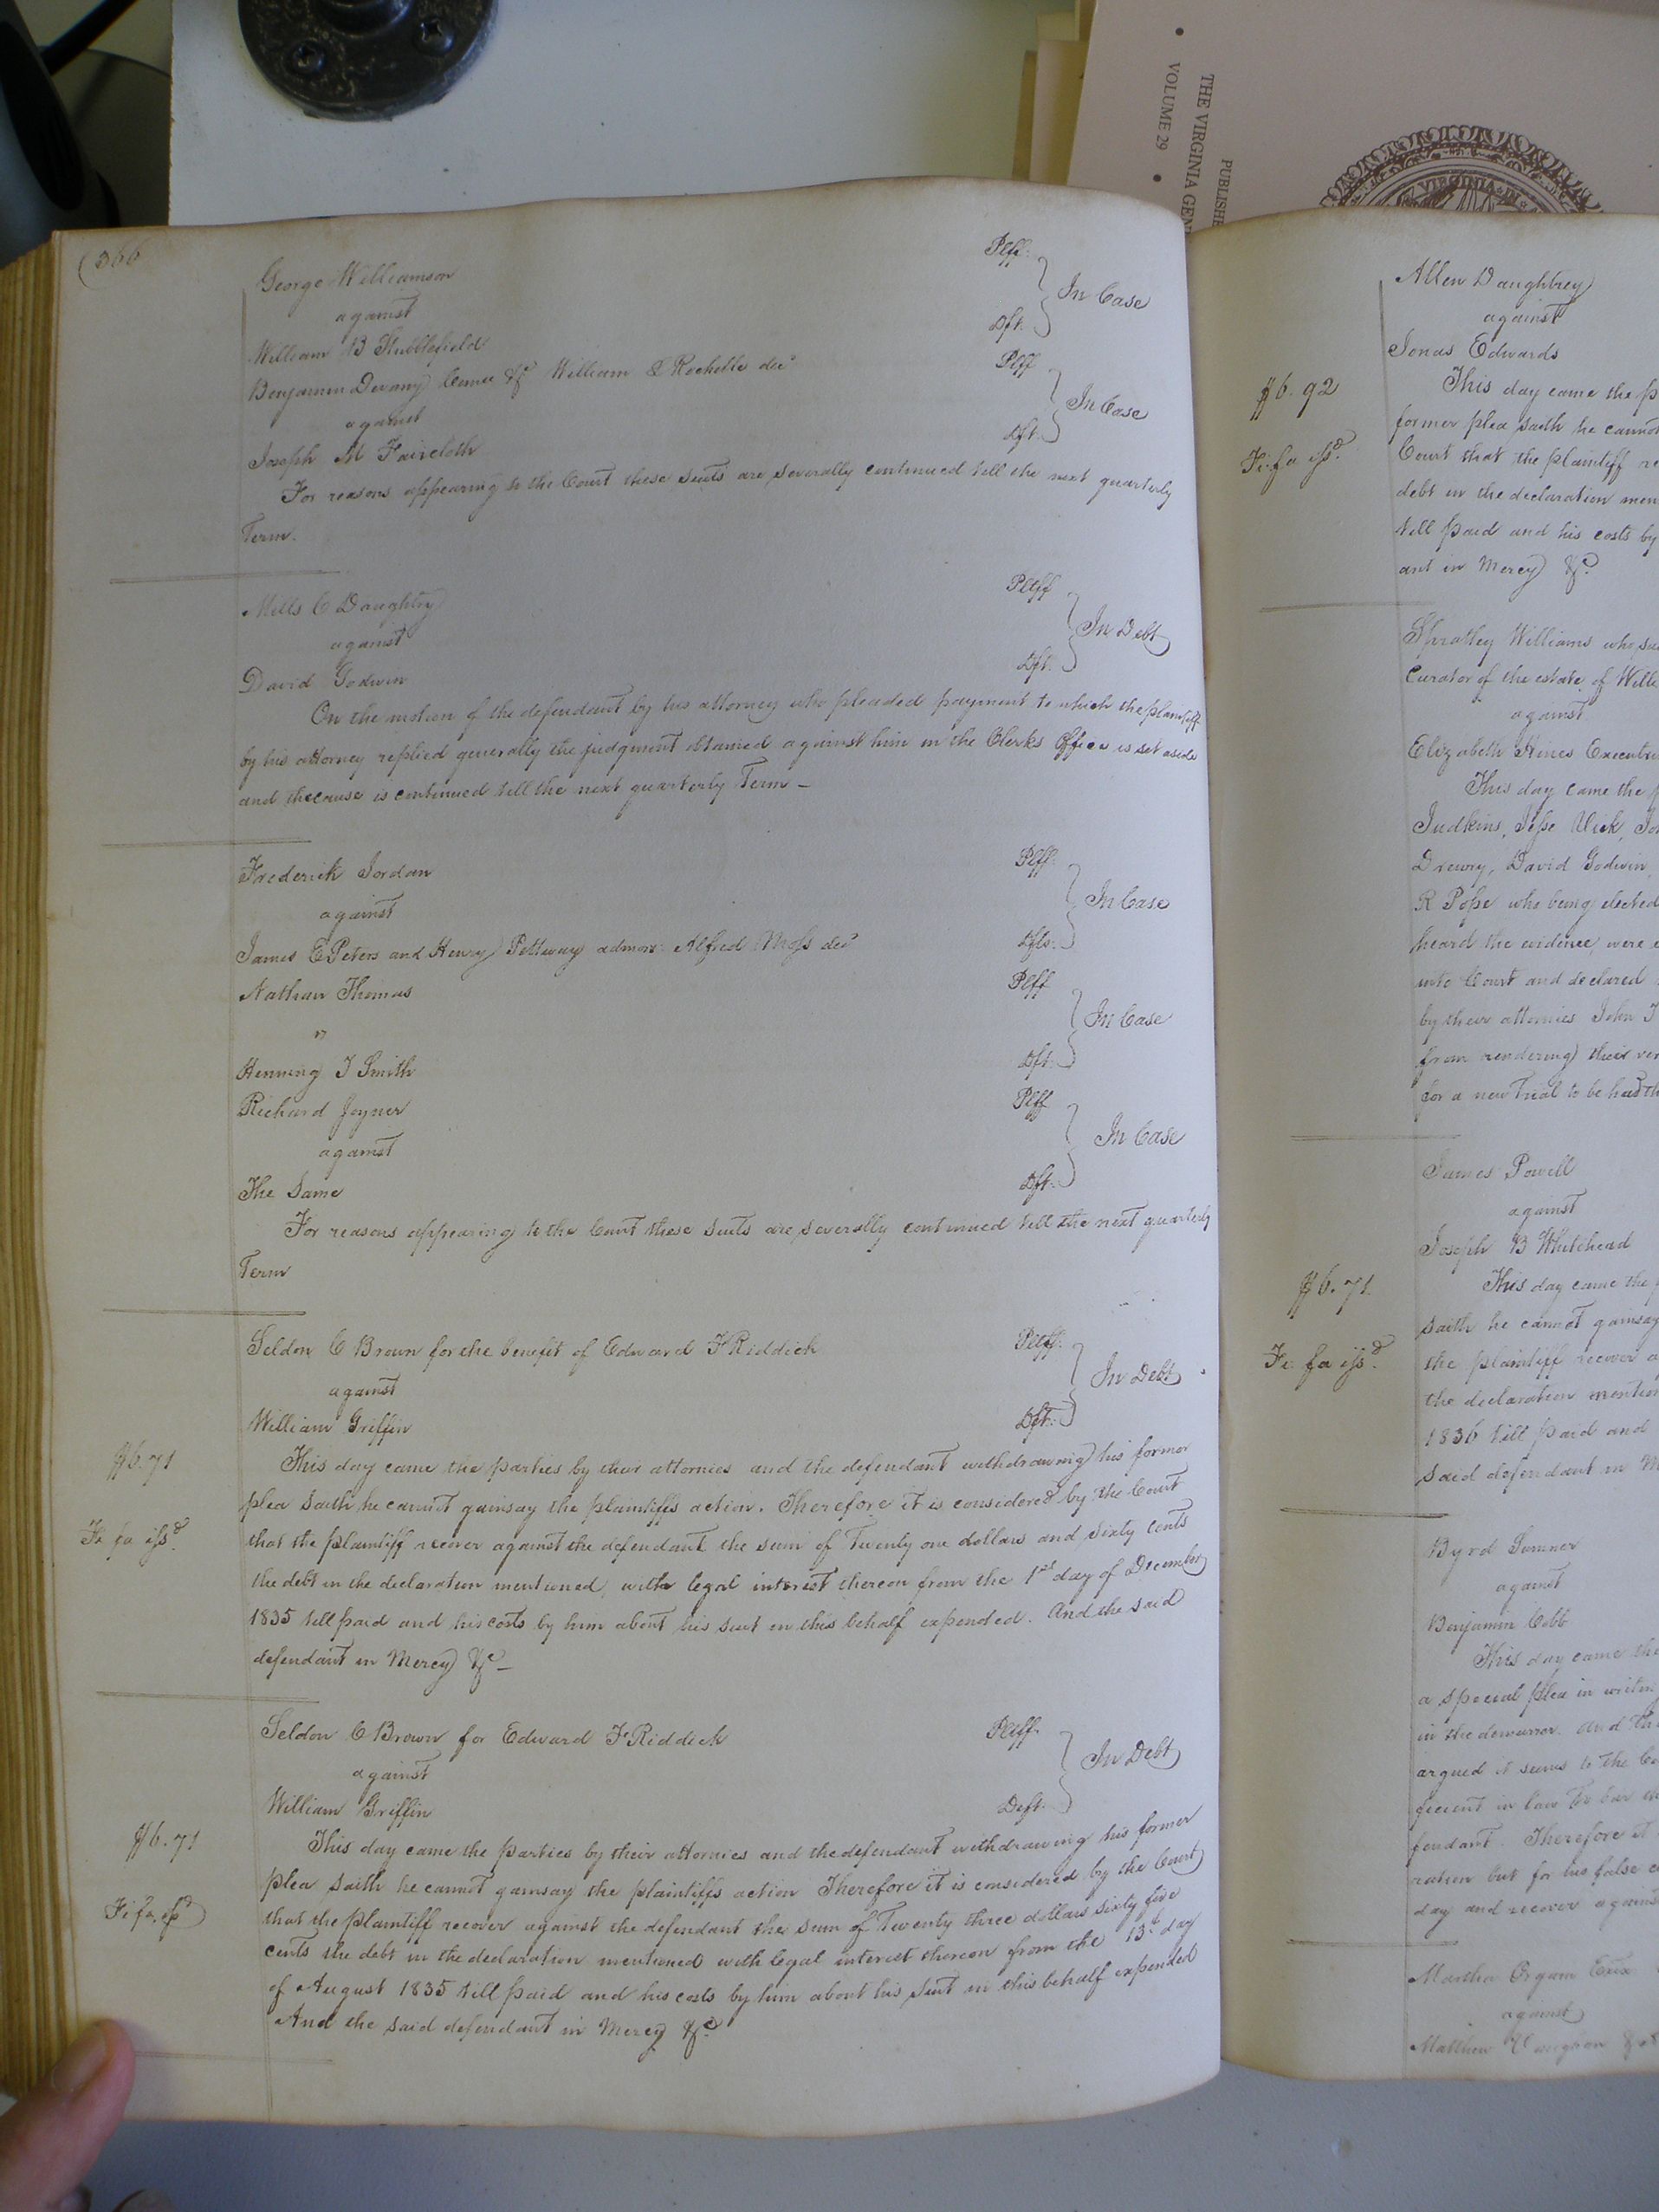 (366
George Williamson Plff.
against In Case
William B Stubblefield Dft.
Benjamin Devany Comee &c William L Rochelle decd Plff
against In Case
Joseph M Faircloth Dft.
For reasons appearing to the Court these suits are severally continued till the next quarterly
Term.
Mills C Daughtry Pltff
against In Debt
David Godwin Dft.
On the motion of the defendant by his attorney who pleaded payment to which the plaintiff
by his attorney replied generally the judgment obtained against him in the Clerks Office is set aside
and the cause is continued till the next quarterly Term –
Frederick Jordan Plff.
against In Case
James E Peters and Henry Pettway admors. Alfred Moss decd Dfts.
Nathan Thomas Plff
vs In Case
Henning T Smith Dft.
Richard Joyner Plff
against In Case
The Same Dft.
For reasons appearing to the Court these suits are severally continued till the next quarterly
Term
Seldon C Brown for the benefit of Edward F Riddick Pltff.
against In Debt
William Griffin Dft.
$6.71 This day came the parties by their attornies and the defendant withdrawing his former
plea saith he cannot gainsay the plaintiffs action. Therefore it is considered by the Court
Fi fa issd. that the plaintiff recover against the defendant the sum of Twenty one dollars and sixty cents
the debt in the declaration mentioned, with legal interest thereon from the 1st day of December
1835 till paid and his costs by him about his suit in this behalf expended. And the said
defendant in Mercy &c –
Seldon C Brown for Edward F Riddick Pltff.
against In Debt
William Griffin Deft.
$6.71 This day came the parties by their attornies and the defendant withdrawing his former
plea saith he cannot gainsay the plaintiffs action Therefore it is considered by the Court
Fi fa issd that the plaintiff recover against the defendant the sum of Twenty three dollars sixty five
cents the debt in the declaration mentioned with legal interest thereon from the 13th day
of August 1835 till paid and his costs by him about his suit in this behalf expended
And the said defendant in Mercy &c.
Allen Daughtrey
against
Jonas Edwards
$6.92 This day came the p
former plea saith he cannot
Fi. fa issd. Court that the plaintiff re
debt in the declaration men
till paid and his costs by
ant in Mercy &c.
Spratley Williams who su
Curator of the estate of Will
against
Elizabeth Hines Executri
This day came the p
Judkins, Jesse Vick, Jo
Drewry, David Godwin,
R Pope who being elected
heard the evidence, were
into Court and declared
by their attornies John T
from rendering their ver
for a new Trial to be had th
James Powell
against
Joseph B Whitehead
$6.71 This day came the
saith he cannot gainsay
Fi fa issd. the plaintiff recover a
the declaration mention
1836 till paid and
said defendant in M
Byrd Sumner
against
Benjamin Cobb
This day came the
a special plea in writin
in the demurrer. And th
argued it seems to the Co
ficient in law to bar th
fendant. Therefore it
ration but for his false c
day and recover agains
Martha Orgain Exix
against
Matthew
PUBLISHE
THE VIRGINIA GEN
• VOLUME 29 •
VIRGINIA